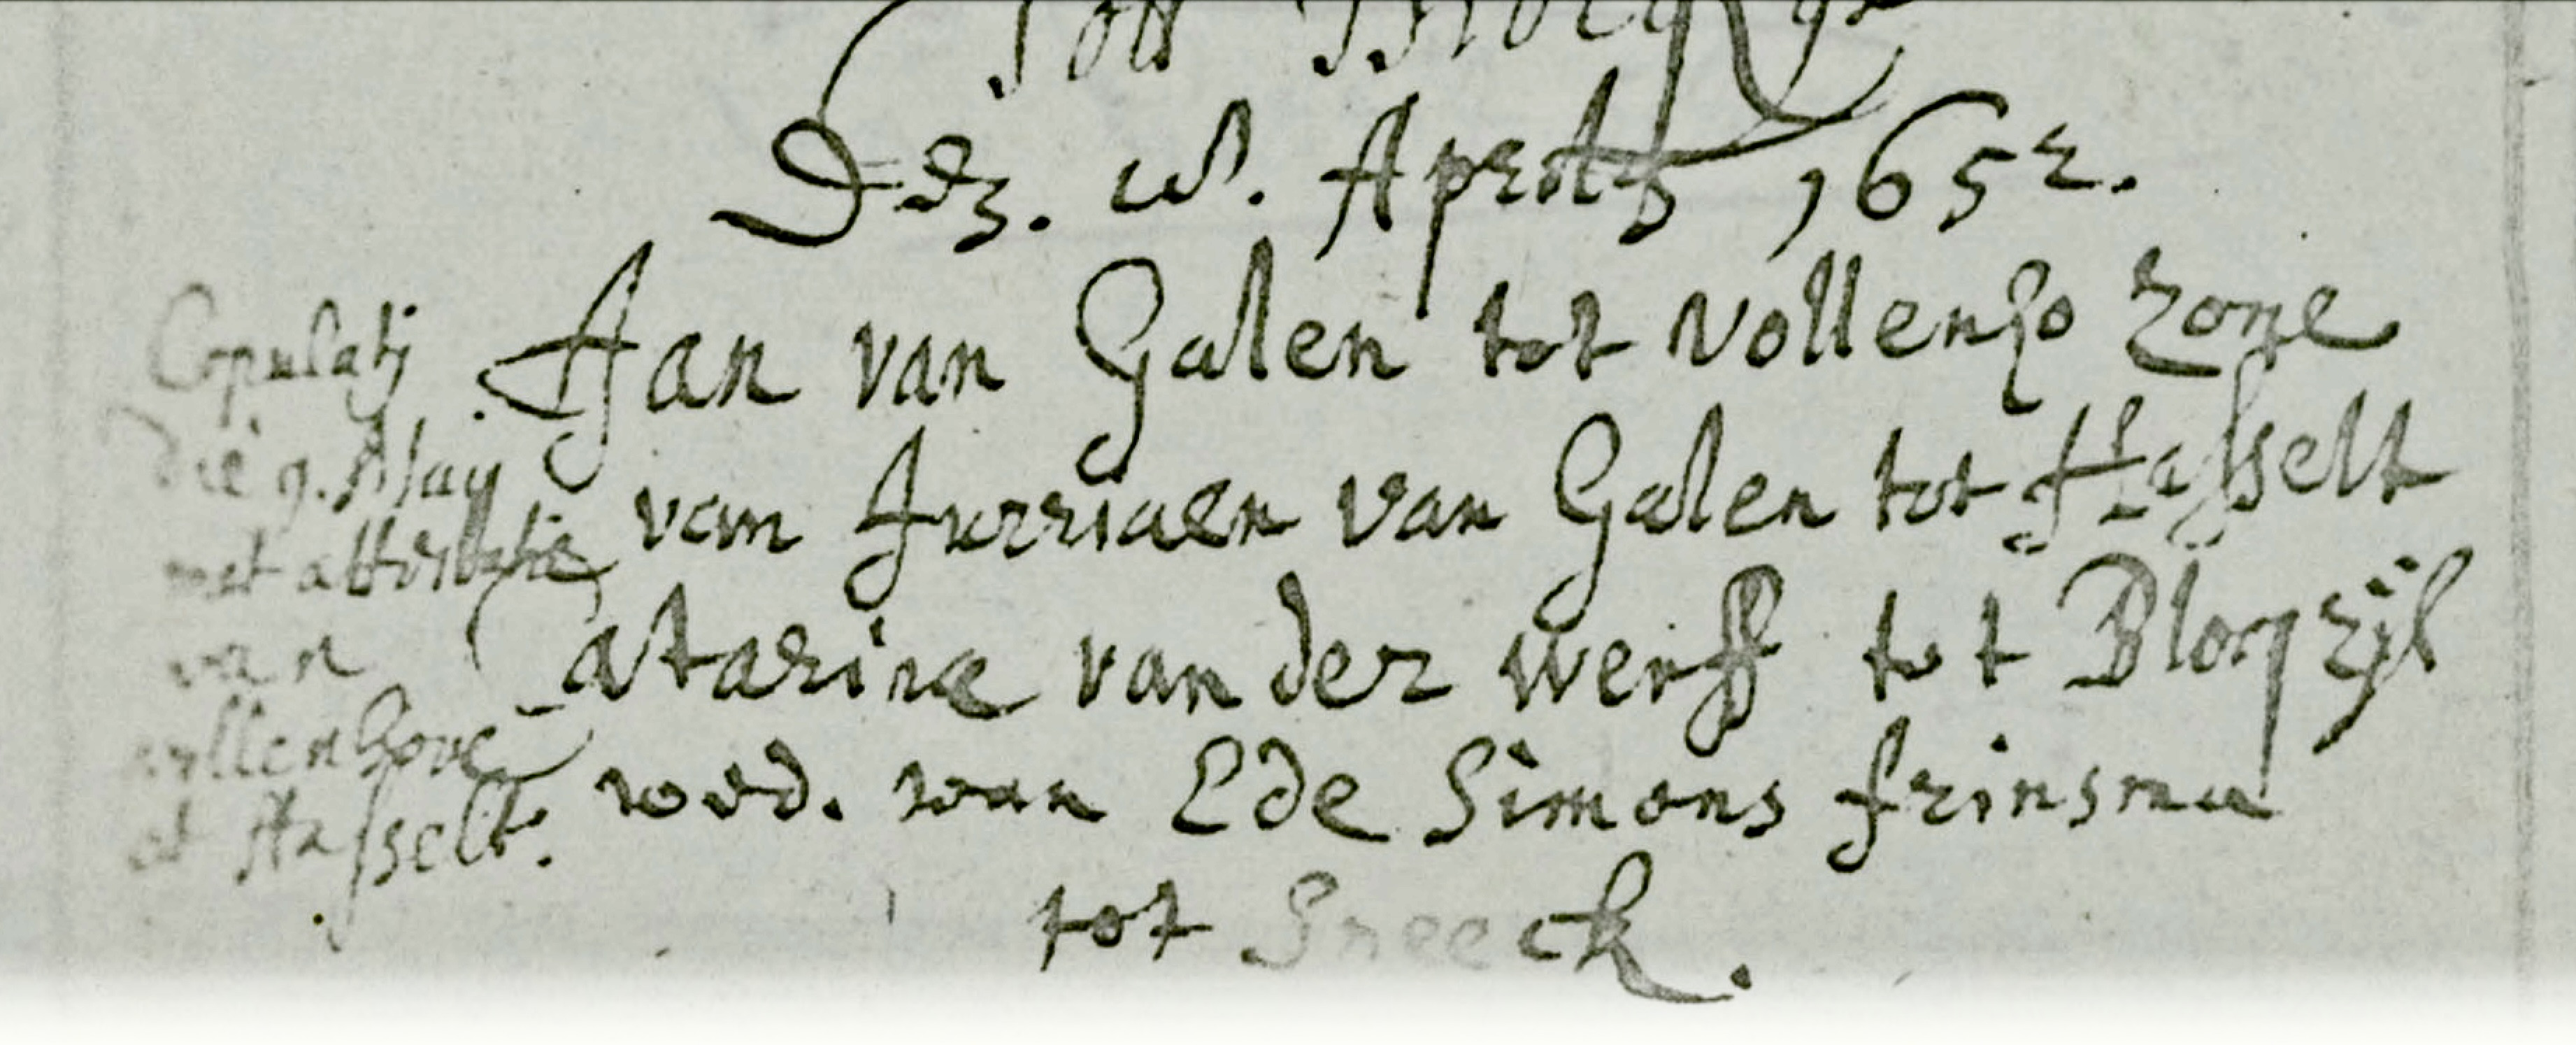 tott
Dez. Aprilis 1652.
Jan van Galen tot vollenho zone
van Jurriaen van Galen tot Hasselt
Catarina van der Werff tot Bloqzijl
wed. van Ede Simons frinsma
tot Sneeck.
Copulatj
die 9. May
met attestatie
van
vollenhove
et Hasselt.